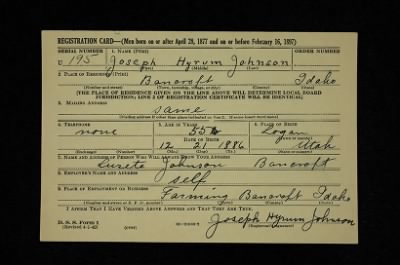 REGISTRATION CARD—(Men born on or after April 28, 1877 and on or before February 16, 1897)
SERIAL NUMBER 1. NAME (Print) ORDER NUMBER
U 195 Joseph Hyrum Johnson
2. PLACE OF RESIDENCE (Print)
Bancroft Idaho
(Town, township, village, or city) (State)
[THE PLACE OF RESIDENCE GIVEN ON THE LINE ABOVE WILL DETERMINE LOCAL BOARD
JURISDICTION; LINE 2 OF REGISTRATION CERTIFICATE WILL BE IDENTICAL]
3. MAILING ADDRESS
same
4. TELEPHONE 5. AGE IN YEARS 6. PLACE OF BIRTH
none 55 Logan
DATE OF BIRTH
12 21 1886 Utah
7. NAME AND ADDRESS OF PERSON WHO WILL ALWAYS KNOW YOUR ADDRESS
Johnson Bancroft
8. EMPLOYER'S NAME AND ADDRESS
self
9. PLACE OF EMPLOYMENT OR BUSINESS
Farming Bancroft Idaho
I AFFIRM THAT I HAVE VERIFIED ABOVE ANSWERS AND THAT THEY ARE TRUE.
Joseph Hyrum Johnson
D. S. S. Form 1
(Revised 4-1-42) (over) (Registrant's signature)